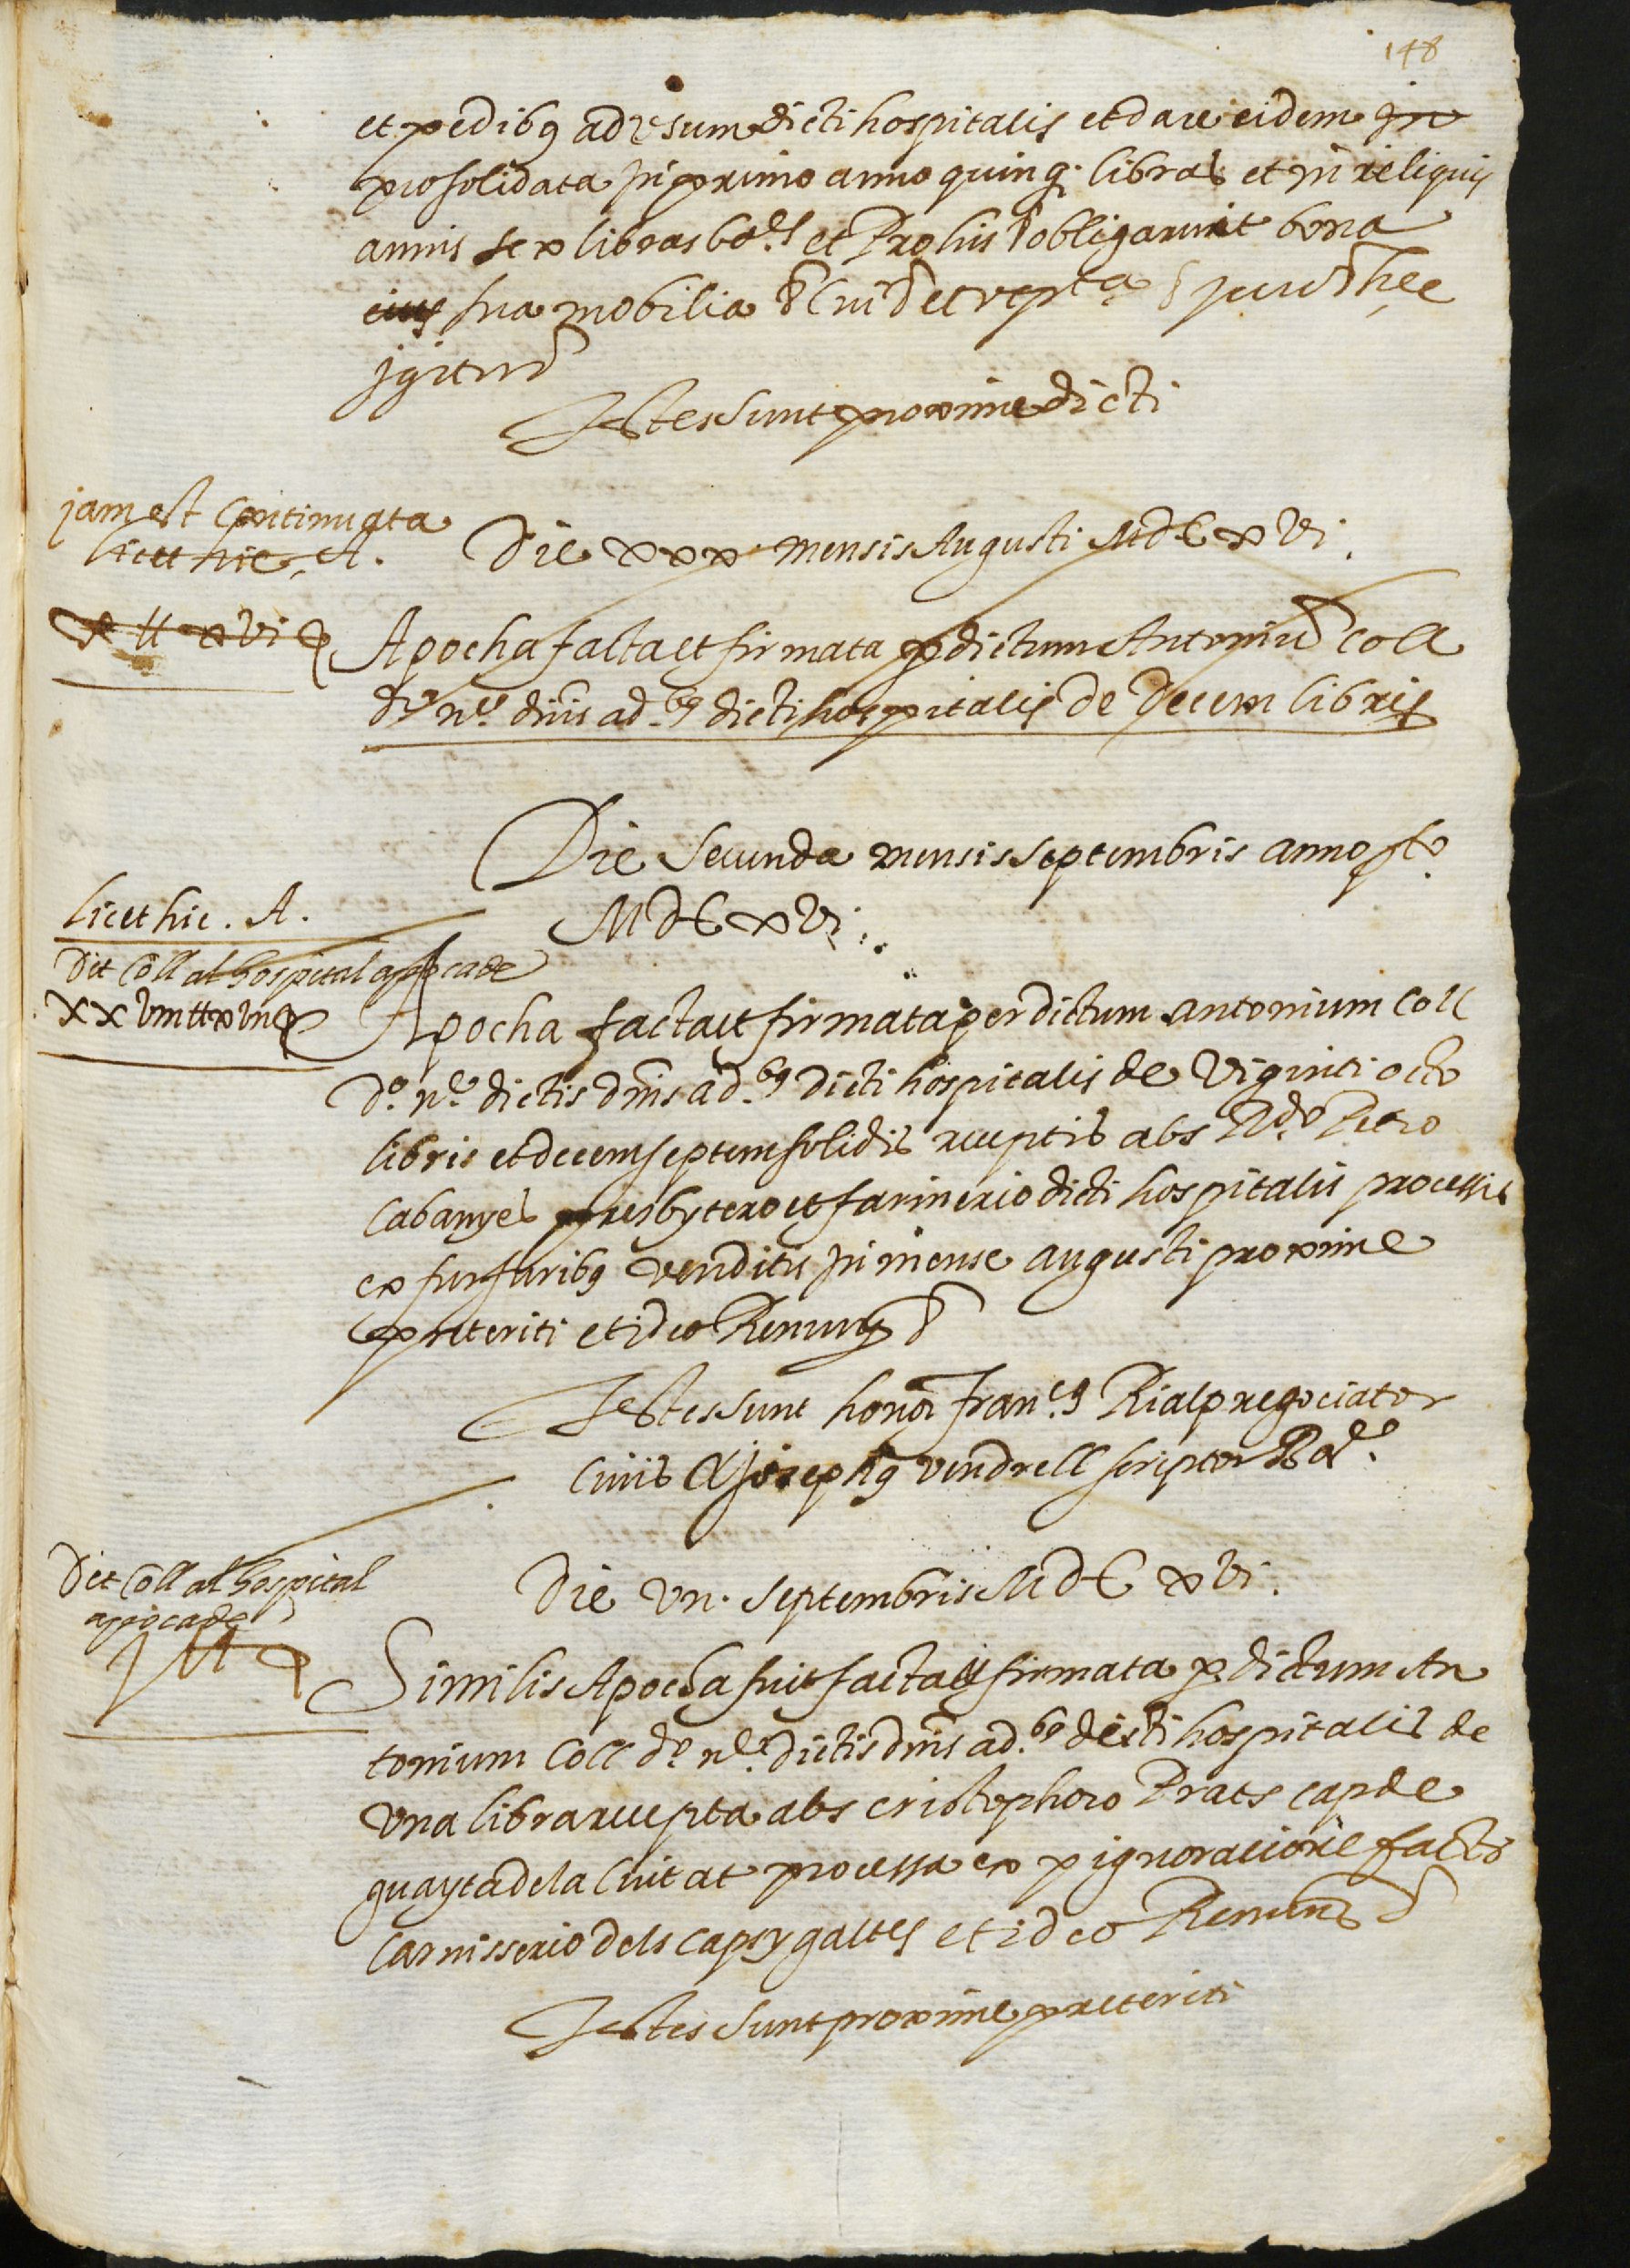 148
et pedibꝰ ad usum dicti hospitalis et dare eidem in
pro solidata in primo anno quinqꝫ libras et in reliquis
annis sex libras et Pro his obligarunt bona
eius sua mobilia et
igitur
Testes sunt proxime dicti
jam est continuata
licet hic. A.
Die xxx mensis Augusti MDCxvi.
Apocha facta et firmata p dictum Antoniu Coll
do. ne. dnis ad.bꝰ dicti hospitalis de Decem libris
Die Secunda mensis Septembris anno
MDCxvi.
licet hic. A.
Dit Coll al hospital apoca de
xxviii ll xvii
Apocha facta et firmata per dictum antonium Coll
do. ne. dictis dnis ad.bꝰ dicti hospitalis de Viginti octo
libris et decem septem solidis receptis abs Rdo. Petro
Cabanyes presbytero et farinerio dicti hospitalis processis
ex furfuribꝰ venditis in mense augusti proxime
preteriti et ideo Renun
Testes sunt honor Fran.cꝰ Rialp negociator
Civis & josephꝰ vendrell scriptor
Dit Coll al hospital
apoca de
j ll
Die vii. Septembris MDCxvi.
Similis Apocha fuit facta et firmata p dictum An
tonium Coll do. ne. dictis dnis ad.bꝰ dicti hospitalis de
Una libra recepta abs cristophoro Prats cap de
guayta de la Ciutat processa ex pignoracione facta
Carnisserio dels caps y galtes et ideo Renun
Testes sunt proxime preteriti